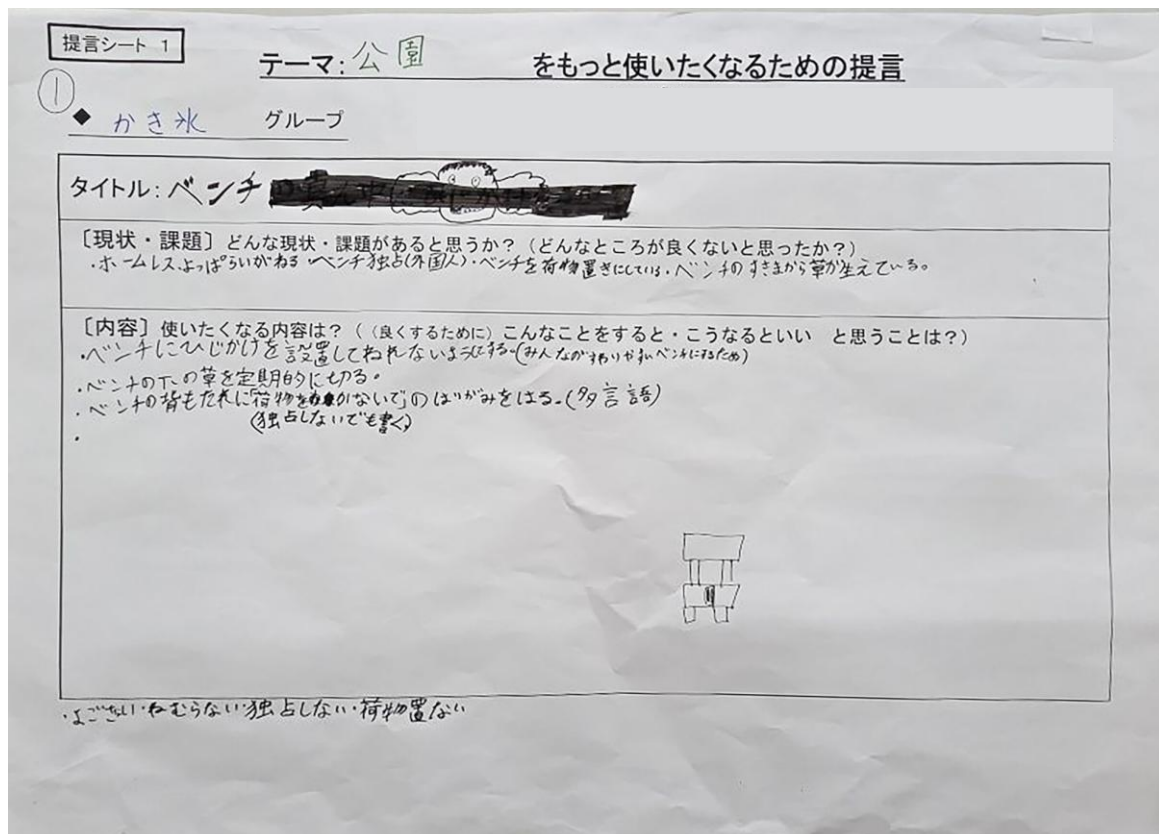 提言シート 1
テーマ:公園 をもっと使いたくなるための提言
①
◆ かき氷 グループ
タイトル:ベンチ
〔現状・課題〕どんな現状・課題があると思うか?(どんなところが良くないと思ったか?)
・ホームレス、よっぱらいがねる・ベンチ独占(外国人)・ベンチを荷物置きにしている・ベンチのすきまから草が生えている。
〔内容〕使いたくなる内容は?((良くするために)こんなことをすると・こうなるといい と思うことは?)
・ベンチにひじかけを設置してねれないようにする。(みんながすわりやすいベンチにするため)
・ベンチの下の草を定期的に切る。
・ベンチの背もたれに「荷物をおかないで」のはりがみをはる。(多言語)
(独占しないでも書く)
・
・よごさない・ねむらない・独占しない・荷物置ない